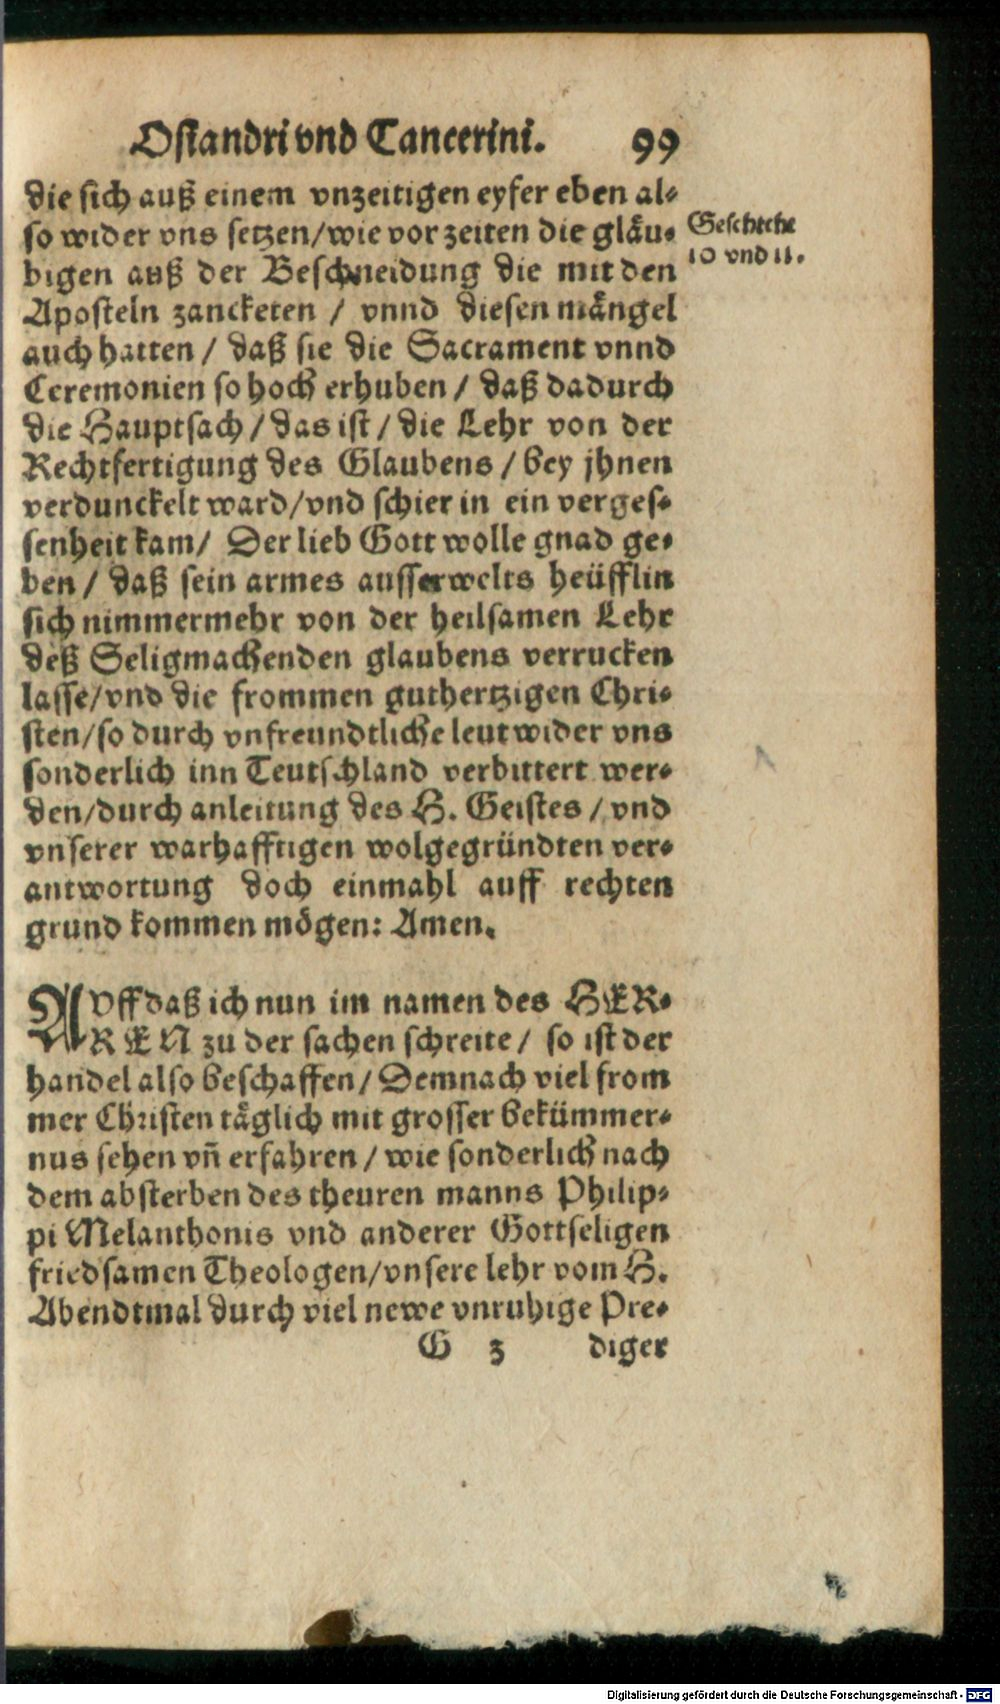 Osiandri vnd Cancerini. 99
die sich auß einem vnzeitigen eyfer eben al-
so wider vns setzen/wie vor zeiten die gläu-
bigen auß der Beschneidung die mit den
Aposteln zancketen / vnnd diesen mängel
auch hatten / daß sie die Sacrament vnnd
Ceremonien so hoch erhuben / daß dadurch
die Hauptsach / das ist / die Lehr von der
Rechtfertigung des Glaubens / bey jhnen
verdunckelt ward/vnd schier in ein verges-
senheit kam/ Der lieb Gott wolle gnad ge-
ben / daß sein armes ausserwelts heüfflin
sich nimmermehr von der heilsamen Lehr
deß Seligmachenden glaubens verrucken
lasse/vnd die frommen guthertzigen Chri-
sten/so durch vnfreundtliche leut wider vns
sonderlich inn Teutschland verbittert wer-
den/durch anleitung des H. Geistes / vnd
vnserer warhafftigen wolgegründten ver-
antwortung doch einmahl auff rechten
grund kommen mögen: Amen.
Geschicht
10 vnd 11.
AVff daß ich nun im namen des HER-
REN zu der sachen schreite / so ist der
handel also beschaffen/ Demnach viel from
mer Christen täglich mit grosser bekümmer-
nus sehen vñ erfahren / wie sonderlich nach
dem absterben des theuren manns Philip-
pi Melanthonis vnd anderer Gottseligen
friedsamen Theologen/vnsere lehr vom H.
Abendtmal durch viel newe vnruhige Pre-
G 3 diger
Digitalisierung gefördert durch die Deutsche Forschungsgemeinschaft - DFG